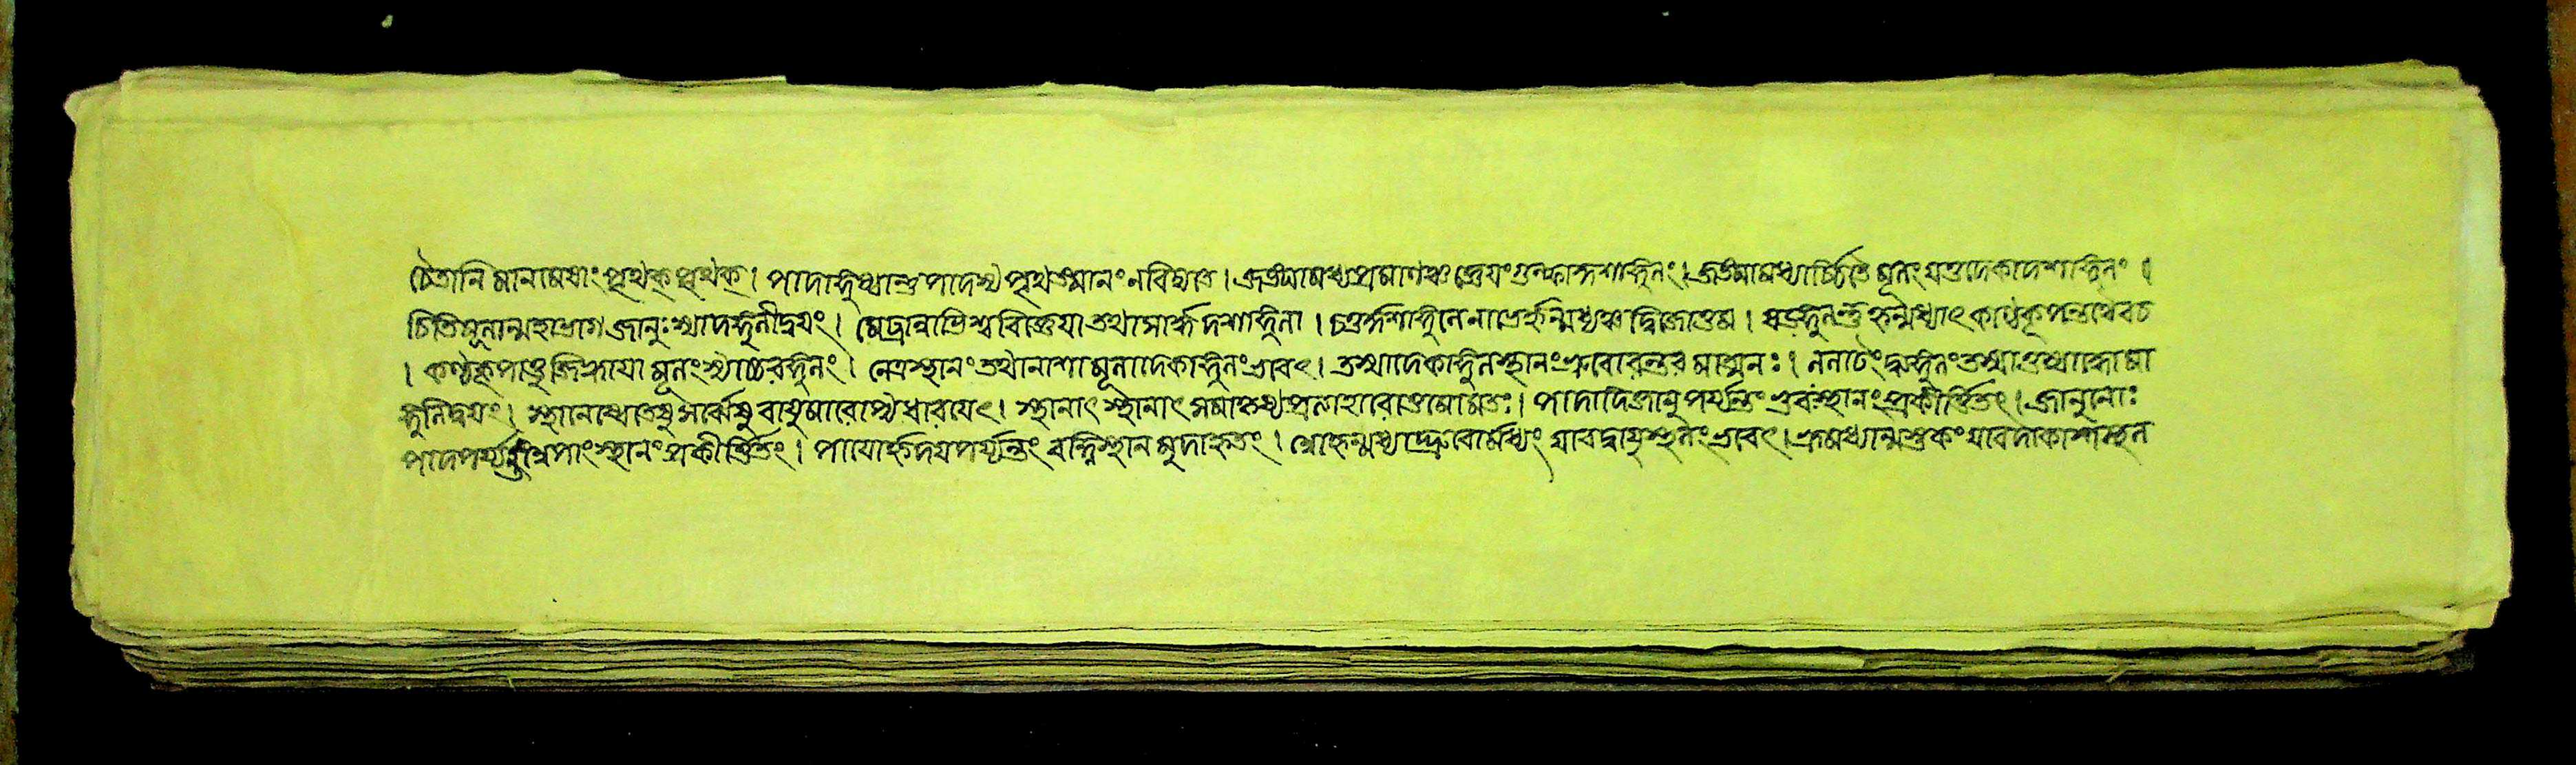 চৈতানি মানামষাং পৃথক্ পৃথক্। পাদাঙ্গুষ্ঠান্তু পাদস্থ পৃথত্তমানং নবিদ্যাত। জঙ্ঘামধ্য প্রমাণঞ্চ গুল্ফাদ্দশাঙ্গুলং। জঙ্ঘামধ্যাচ্চিতি মূলং যত্তদেকাদশাঙ্গুলং।
চিতিমূলান্মহাভাগ জানুঃ স্যাদঙ্গুলীদ্বয়ং। মেঢ্রান্নাভিশ্চ বিজ্ঞেয়া তথা সার্দ্ধ দশাঙ্গুলা। চতুর্দ্দশাঙ্গুলে নাভের্হৃন্মধ্যঞ্চ দ্বিজোত্তম। ষড়ঙ্গুলন্তু হৃন্মধ্যাৎ কণ্ঠকূপন্তথৈবচ
। কণ্ঠকূপাত্তু জিহ্বায়া মূলং স্যাচ্চতুরঙ্গুলং। নেত্রস্থানং তথা নাশা মূলাদেকাঙ্গুলং ভবেৎ। তস্মাদেকাঙ্গুলস্থানং ভ্রুবোরন্তর মাত্মনঃ। ললাটং দ্ব্যঙ্গুলং তস্মাত্তস্মাদ্ব্যোমা
ঙ্গুলিদ্বয়ং। স্থানেষ্বেতেষু সর্ব্বেষু বায়ুমারোপ্য ধারয়েৎ। স্থানাৎ স্থানাৎ সমাকৃষ্য প্রত্যাহারোত্তমোমতঃ। পাদাদিজানু পর্য্যন্তং ধ্রুবংস্থানং প্রকীর্ত্তিতং। জানুনোঃ
পাদপর্য্যন্তমপাং স্থানং প্রকীর্ত্তিতং। পায়োর্হৃদয় পর্য্যন্তং বহ্নিস্থান মুদাহৃতং। হৃন্মধ্যাদ্ভ্রুবোর্মধ্যং যাবদ্বায়ুস্থলং ভবেৎ। ভ্রূমধ্যান্মস্তকং যাবদাকাশস্থল